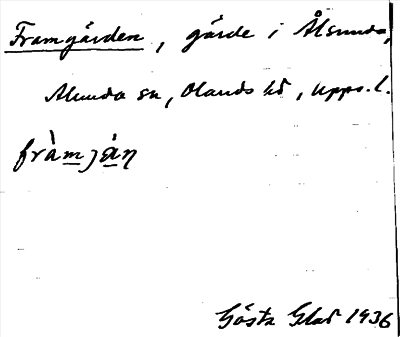 Framgärden, gärde i Ålsunda,
Alunda sn, Olands hd, Upps. l.
fràmjàn
Gösta Glad 1936